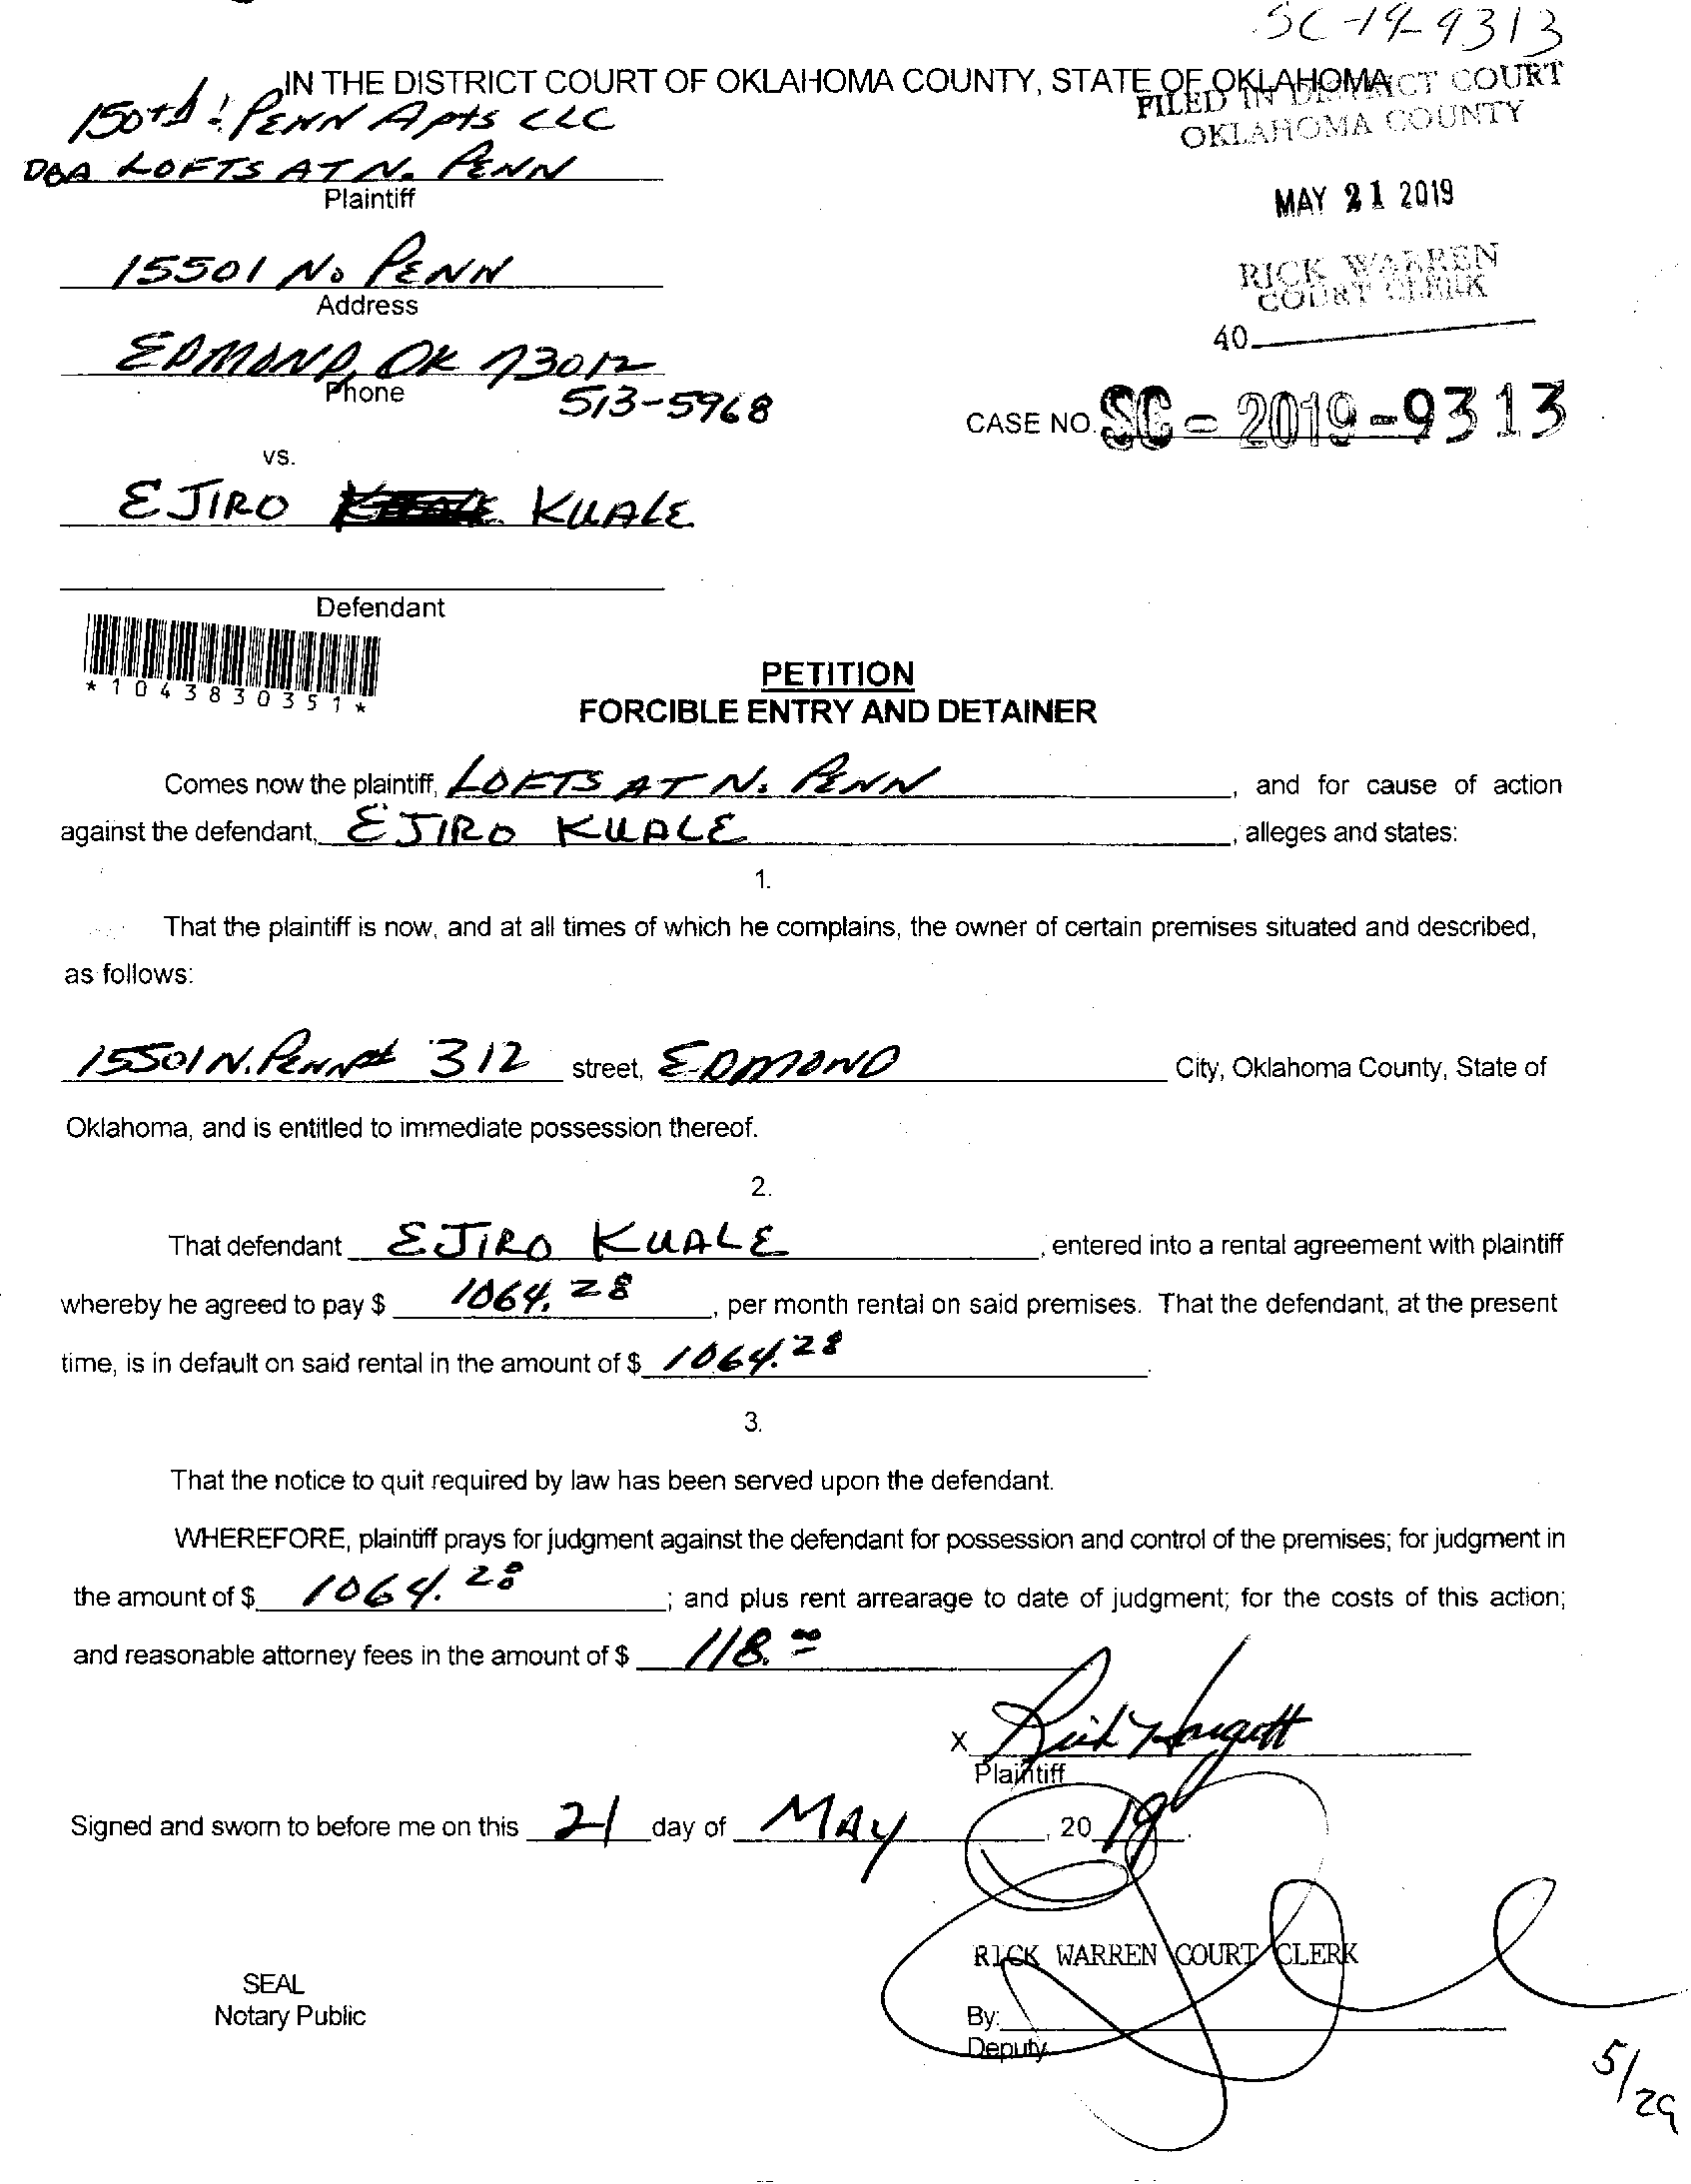 SC-19-9313
IN THE DISTRICT COURT OF OKLAHOMA COUNTY, STATE OF OKLAHOMA
FILED IN DISTRICT COURT
OKLAHOMA COUNTY
150th & PENN Apts LLC
DBA LOFTS AT N. PENN
Plaintiff
MAY 21 2019
15501 N. PENN
Address
RICK WARREN
COURT CLERK
40
EDMOND, OK 73012
Phone
513-5968
CASE NO. SC-2019-9313
vs.
EJIRO KUALE
Defendant
*1043830351*
PETITION
FORCIBLE ENTRY AND DETAINER
Comes now the plaintiff, LOFTS AT N. PENN, and for cause of action
against the defendant, EJIRO KUALE, alleges and states:
1.
That the plaintiff is now, and at all times of which he complains, the owner of certain premises situated and described,
as follows:
15501 N. PENN 312 street, EDMOND City, Oklahoma County, State of
Oklahoma, and is entitled to immediate possession thereof.
2.
That defendant EJIRO KUALE, entered into a rental agreement with plaintiff
whereby he agreed to pay $ 1064.28, per month rental on said premises. That the defendant, at the present
time, is in default on said rental in the amount of $ 1064.28.
3.
That the notice to quit required by law has been served upon the defendant.
WHEREFORE, plaintiff prays for judgment against the defendant for possession and control of the premises; for judgment in
the amount of $ 1064.28; and plus rent arrearage to date of judgment; for the costs of this action;
and reasonable attorney fees in the amount of $ 118.00
X
Plaintiff
Signed and sworn to before me on this 21 day of MAY, 2019.
RICK WARREN COURT CLERK
SEAL
Notary Public
By:
Deputy
5/29